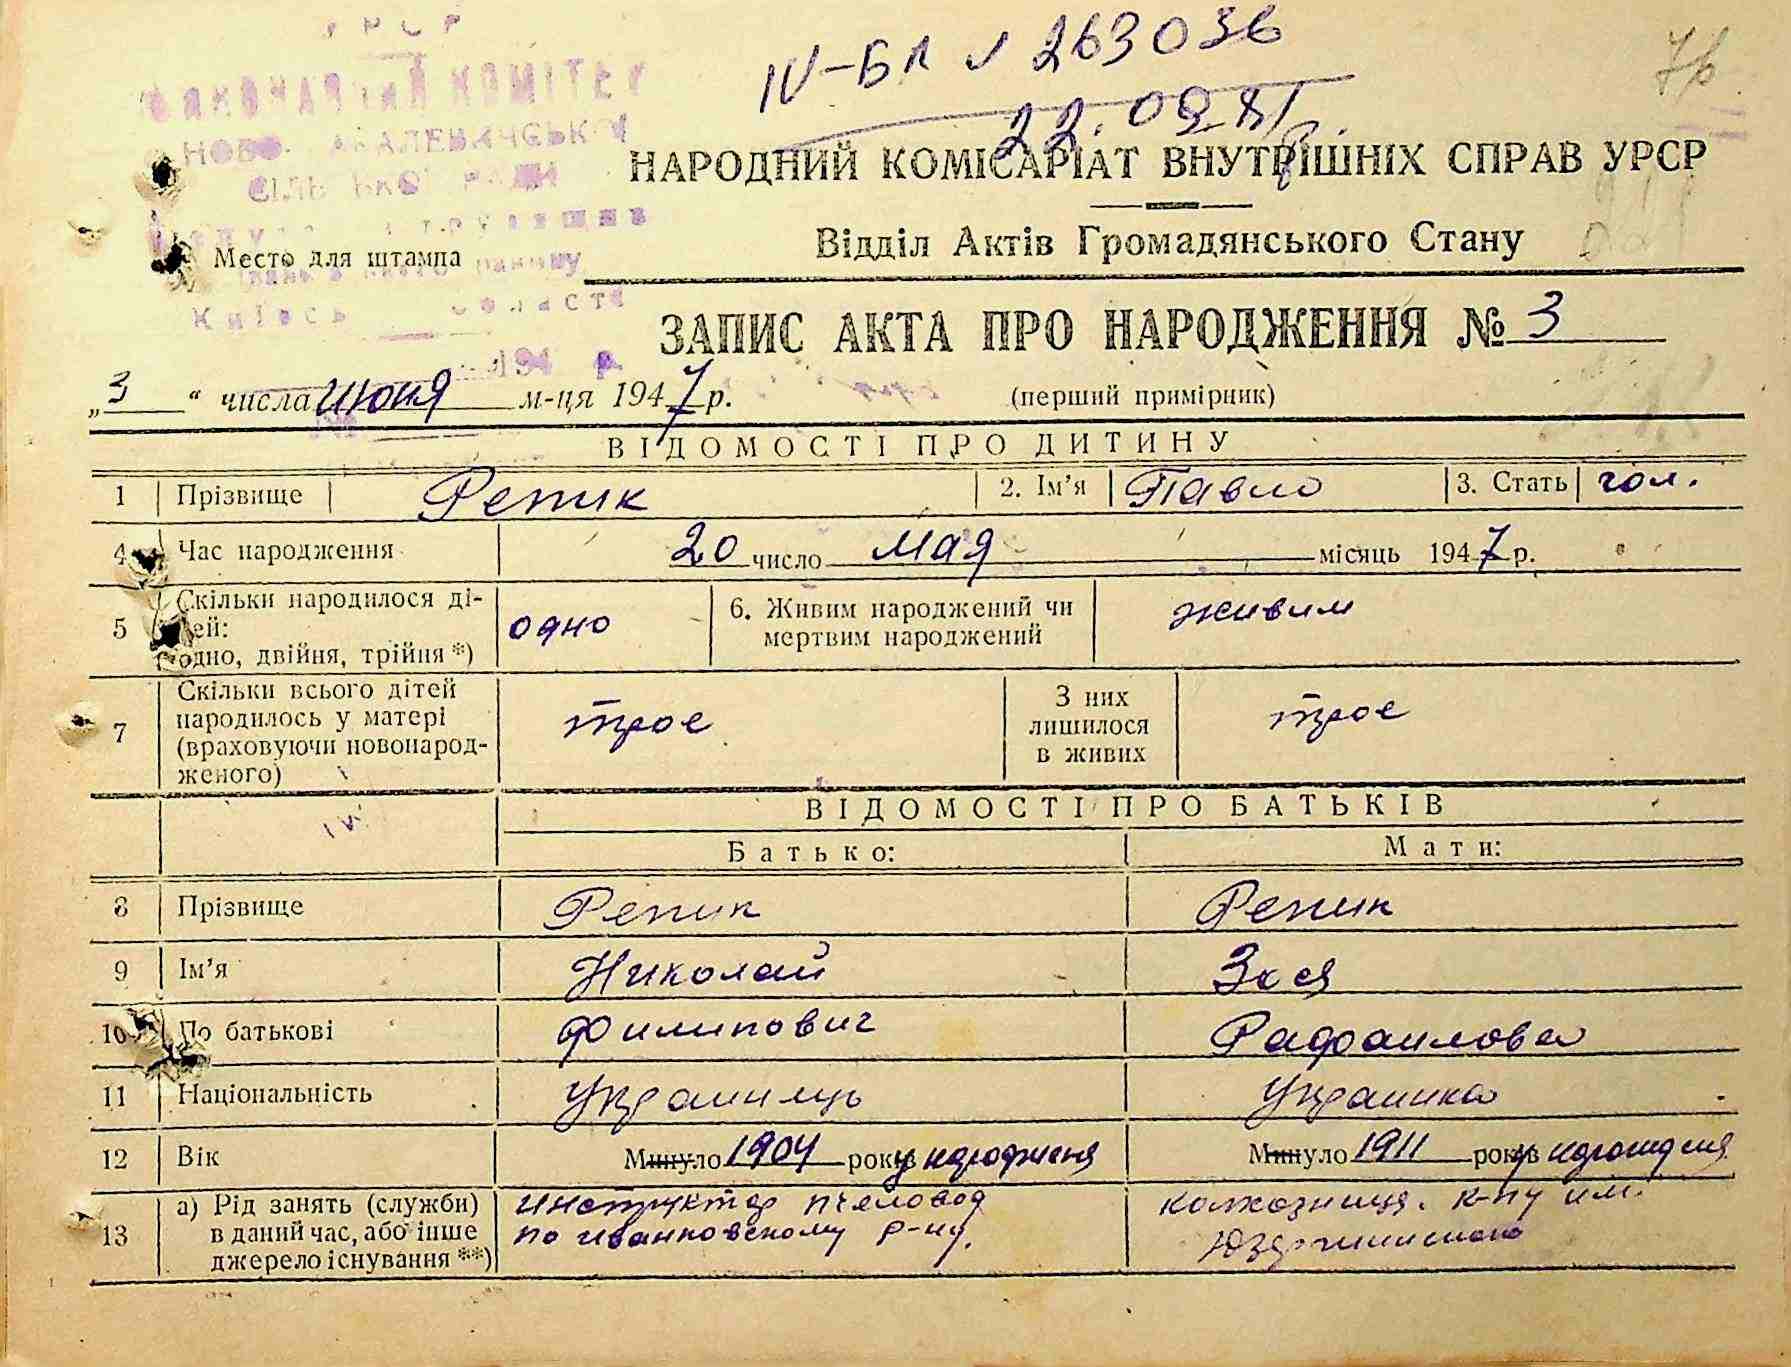 IV-БЛ № 263036
76
22.09.81
УРСР
ВИКОНАВЧИЙ КОМІТЕТ
СІЛЬСЬКОЇ РАДИ
Київської області
194 р.
НАРОДНИЙ КОМІСАРІАТ ВНУТРІШНІХ СПРАВ УРСР
Відділ Актів Громадянського Стану
Место для штампа
ЗАПИС АКТА ПРО НАРОДЖЕННЯ № 3
„3“ числа июня м-ця 1947 р. (перший примірник)
ВІДОМОСТІ ПРО ДИТИНУ
1 Прізвище Репик 2. Ім’я Павло 3. Стать чол.
4 Час народження 20 число мая місяць 1947 р.
5 Скільки народилося ді-
тей:
одно, двійня, трійня *) одно 6. Живим народжений чи
мертвим народжений живим
7 Скільки всього дітей
народилось у матері
(враховуючи новонарод-
женого) трое З них
лишилося
в живих трое
ВІДОМОСТІ ПРО БАТЬКІВ
Батько: Мати:
8 Прізвище Репик Репик
9 Ім’я Николай Зося
10 По батькові Филипович Рафаиловна
11 Національність Украинець Украинка
12 Вік Минуло 1904 років народженя Минуло 1911 років народженя
13 а) Рід занять (служби)
в даний час, або інше
джерело існування **) инструктор пчеловод
по иванковскому р-ну. колхозниця. к-пу им.
Дзержинского